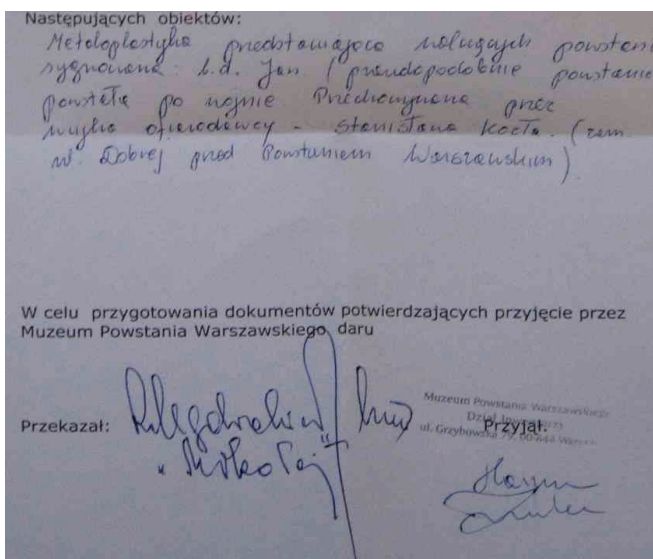 Następujących obiektów:
Metaloplastyka przedstawiająca walczących
sygnowana: b.d. Jan (prawdopodobnie
powstała po wojnie Przechowywana przez
ofiarodawcy - Stanisława Kocła. (zam.
w. Dobrej przed Powstaniem Warszawskim)
W celu przygotowania dokumentów potwierdzających przyjęcie przez
Muzeum Powstania Warszawskiego daru
Muzeum Powstania Warszawskiego
Dział Inwentarzy
Przekazał: Przyjął:
ul. Grzybowska 79, 00-844 Warszawa
"Mikołaj"